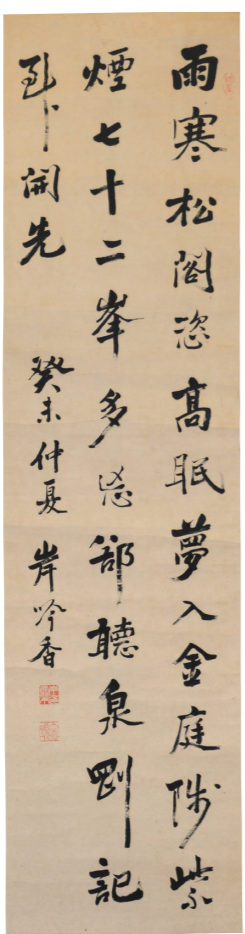 雨寒松閣恣高眠夢入金庭陟紫
煙七十二峯多忘卻聽泉剛記
到開先
癸未仲夏 岸吟香